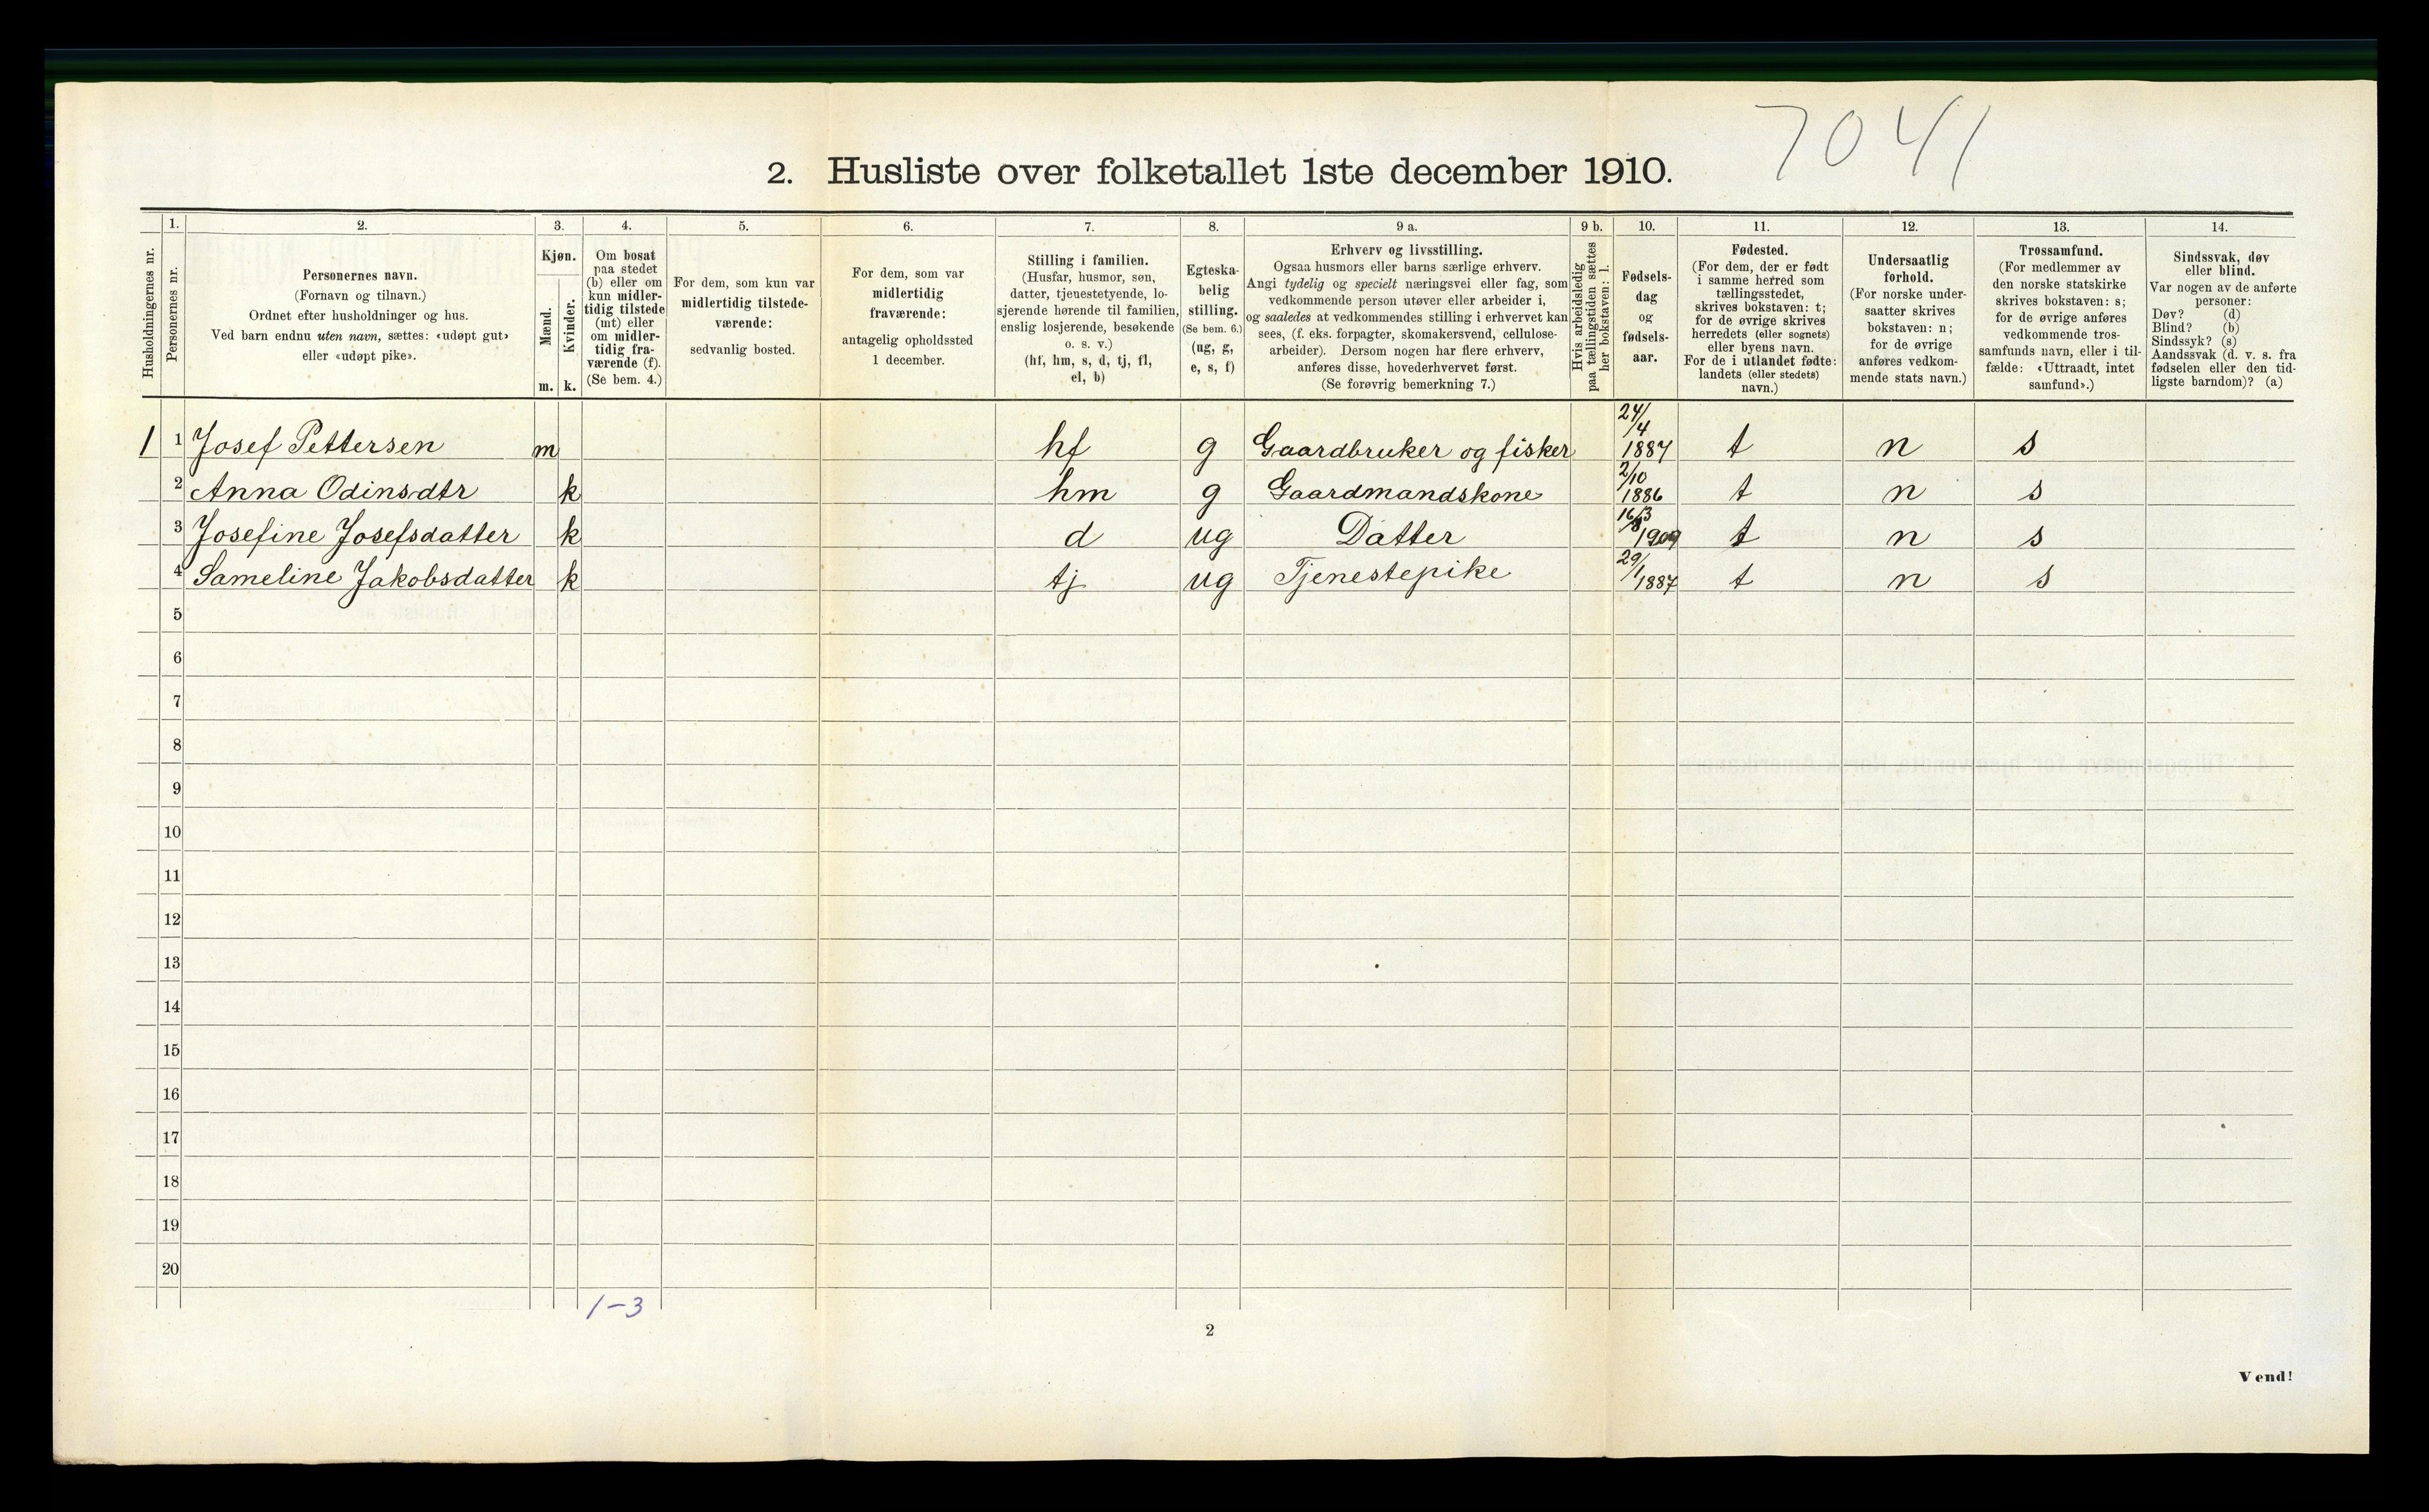 7041
2. Husliste over folketallet 1ste december 1910.
Husholdningernes nr.
1.
Personernes nr.
2.
Personernes navn.
(Fornavn og tilnavn.)
Ordnet efter husholdninger og hus.
Ved barn endnu uten navn, sættes: «udøpt gut»
eller «udøpt pike».
3.
Kjøn.
Mænd.
m.
Kvinder.
k.
4.
Om bosat
paa stedet
(b) eller om
kun midler-
tidig tilstede
(mt) eller
om midler-
tidig fra-
værende (f).
(Se bem. 4.)
5.
For dem, som kun var
midlertidig tilstede-
værende:
sedvanlig bosted.
6.
For dem, som var
midlertidig
fraværende:
antagelig opholdssted
1 december.
7.
Stilling i familien.
(Husfar, husmor, søn,
datter, tjenestetyende, lo-
sjerende hørende til familien,
enslig losjerende, besøkende
o. s. v.)
(hf, hm, s, d, tj, fl,
el, b)
8.
Egteska-
belig
stilling.
(Se bem. 6.)
(ug, g,
e, s, f)
9 a.
Erhverv og livsstilling.
Ogsaa husmors eller barns særlige erhverv.
Angi tydelig og specielt næringsvei eller fag, som
vedkommende person utøver eller arbeider i,
og saaledes at vedkommendes stilling i erhvervet kan
sees, (f. eks. forpagter, skomakersvend, cellulose-
arbeider). Dersom nogen har flere erhverv,
anføres disse, hovederhvervet først.
(Se forøvrig bemerkning 7.)
9 b.
Hvis arbeidsledig
paa tællingstiden sættes
her bokstaven: l.
10.
Fødsels-
dag
og
fødsels-
aar.
11.
Fødested.
(For dem, der er født
i samme herred som
tællingsstedet,
skrives bokstaven: t;
for de øvrige skrives
herredets (eller sognets)
eller byens navn.
For de i utlandet fødte:
landets (eller stedets)
navn.)
12.
Undersaatlig
forhold.
(For norske under-
saatter skrives
bokstaven: n;
for de øvrige
anføres vedkom-
mende stats navn.)
13.
Trossamfund.
(For medlemmer av
den norske statskirke
skrives bokstaven: s;
for de øvrige anføres
vedkommende tros-
samfunds navn, eller i til-
fælde: «Uttraadt, intet
samfund».)
14.
Sindssvak, døv
eller blind.
Var nogen av de anførte
personer:
Døv? (d)
Blind? (b)
Sindssyk? (s)
Aandssvak (d. v. s. fra
fødselen eller den tid-
ligste barndom)? (a)
1 1 Josef Pettersen m hf g Gaardbruker og fisker 24/4 1887 t n s
2 Anna Odinsdtr k hm g Gaardmandskone 2/10 1886 t n s
3 Josefine Josefsdatter k d ug Datter 16/3 1909 t n s
4 Sameline Jakobsdatter k tj ug Tjenestepike 29/1 1887 t n s
5
6
7
8
9
10
11
12
13
14
15
16
17
18
19
20
1-3
2
Vend!